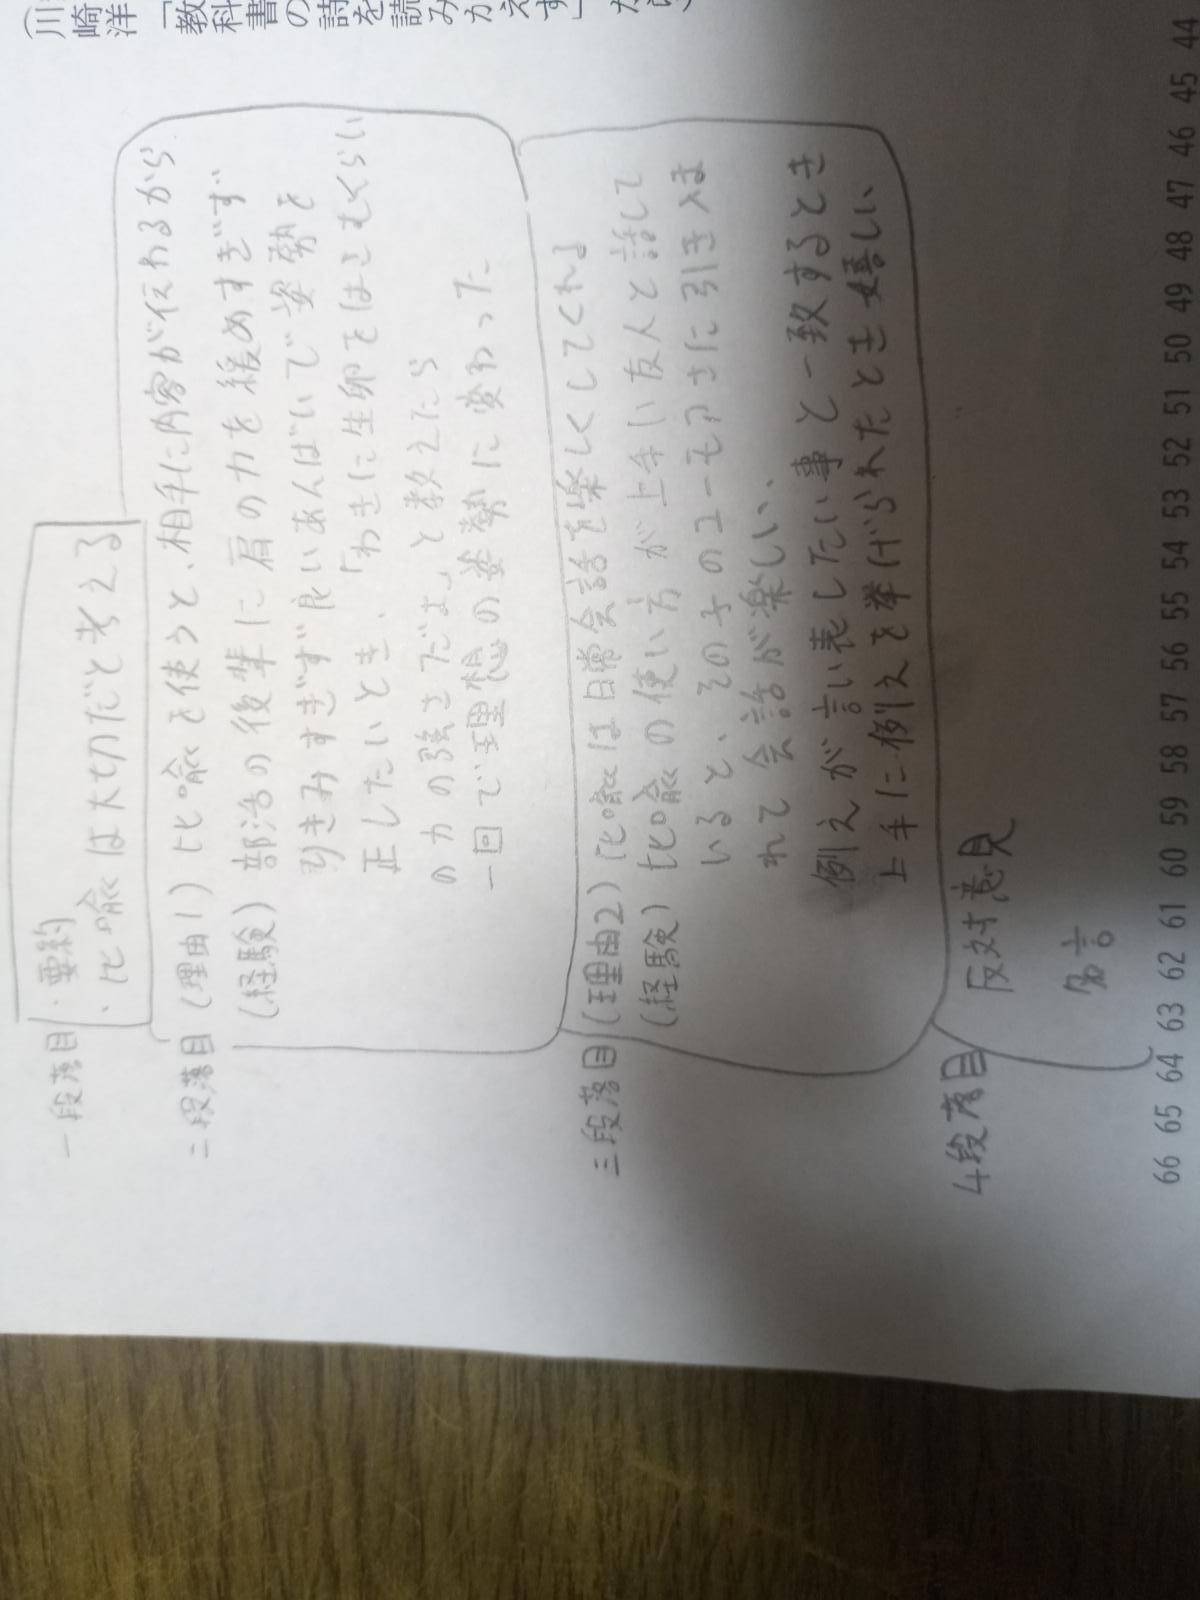 (川崎洋「教科書の詩を読みかえす」
一段落目
・要約
・比喩は大切だと考える
二段落目
(理由1)比喩を使うと、相手に内容が伝わるから
(経験)部活の後輩に肩の力を緩めすぎず
力きみすぎず良いあんばいで姿勢を
正したいとき、「わきに生卵をはさむくらい
の力の強さだよ」と教えたら
一回で理想の姿勢に変わった
三段落目
(理由2)比喩は日常会話を楽しくしてくれる
(経験)比喩の使い方が上手い友人と話して
いると、その子のユーモアさに引き込ま
れて会話が楽しい、
例えが言い表したい事と一致するとき
上手に例えを挙げられたとき嬉しい
4段落目
反対意見
名言
66 65 64 63 62 61 60 59 58 57 56 55 54 53 52 51 50 49 48 47 46 45 44